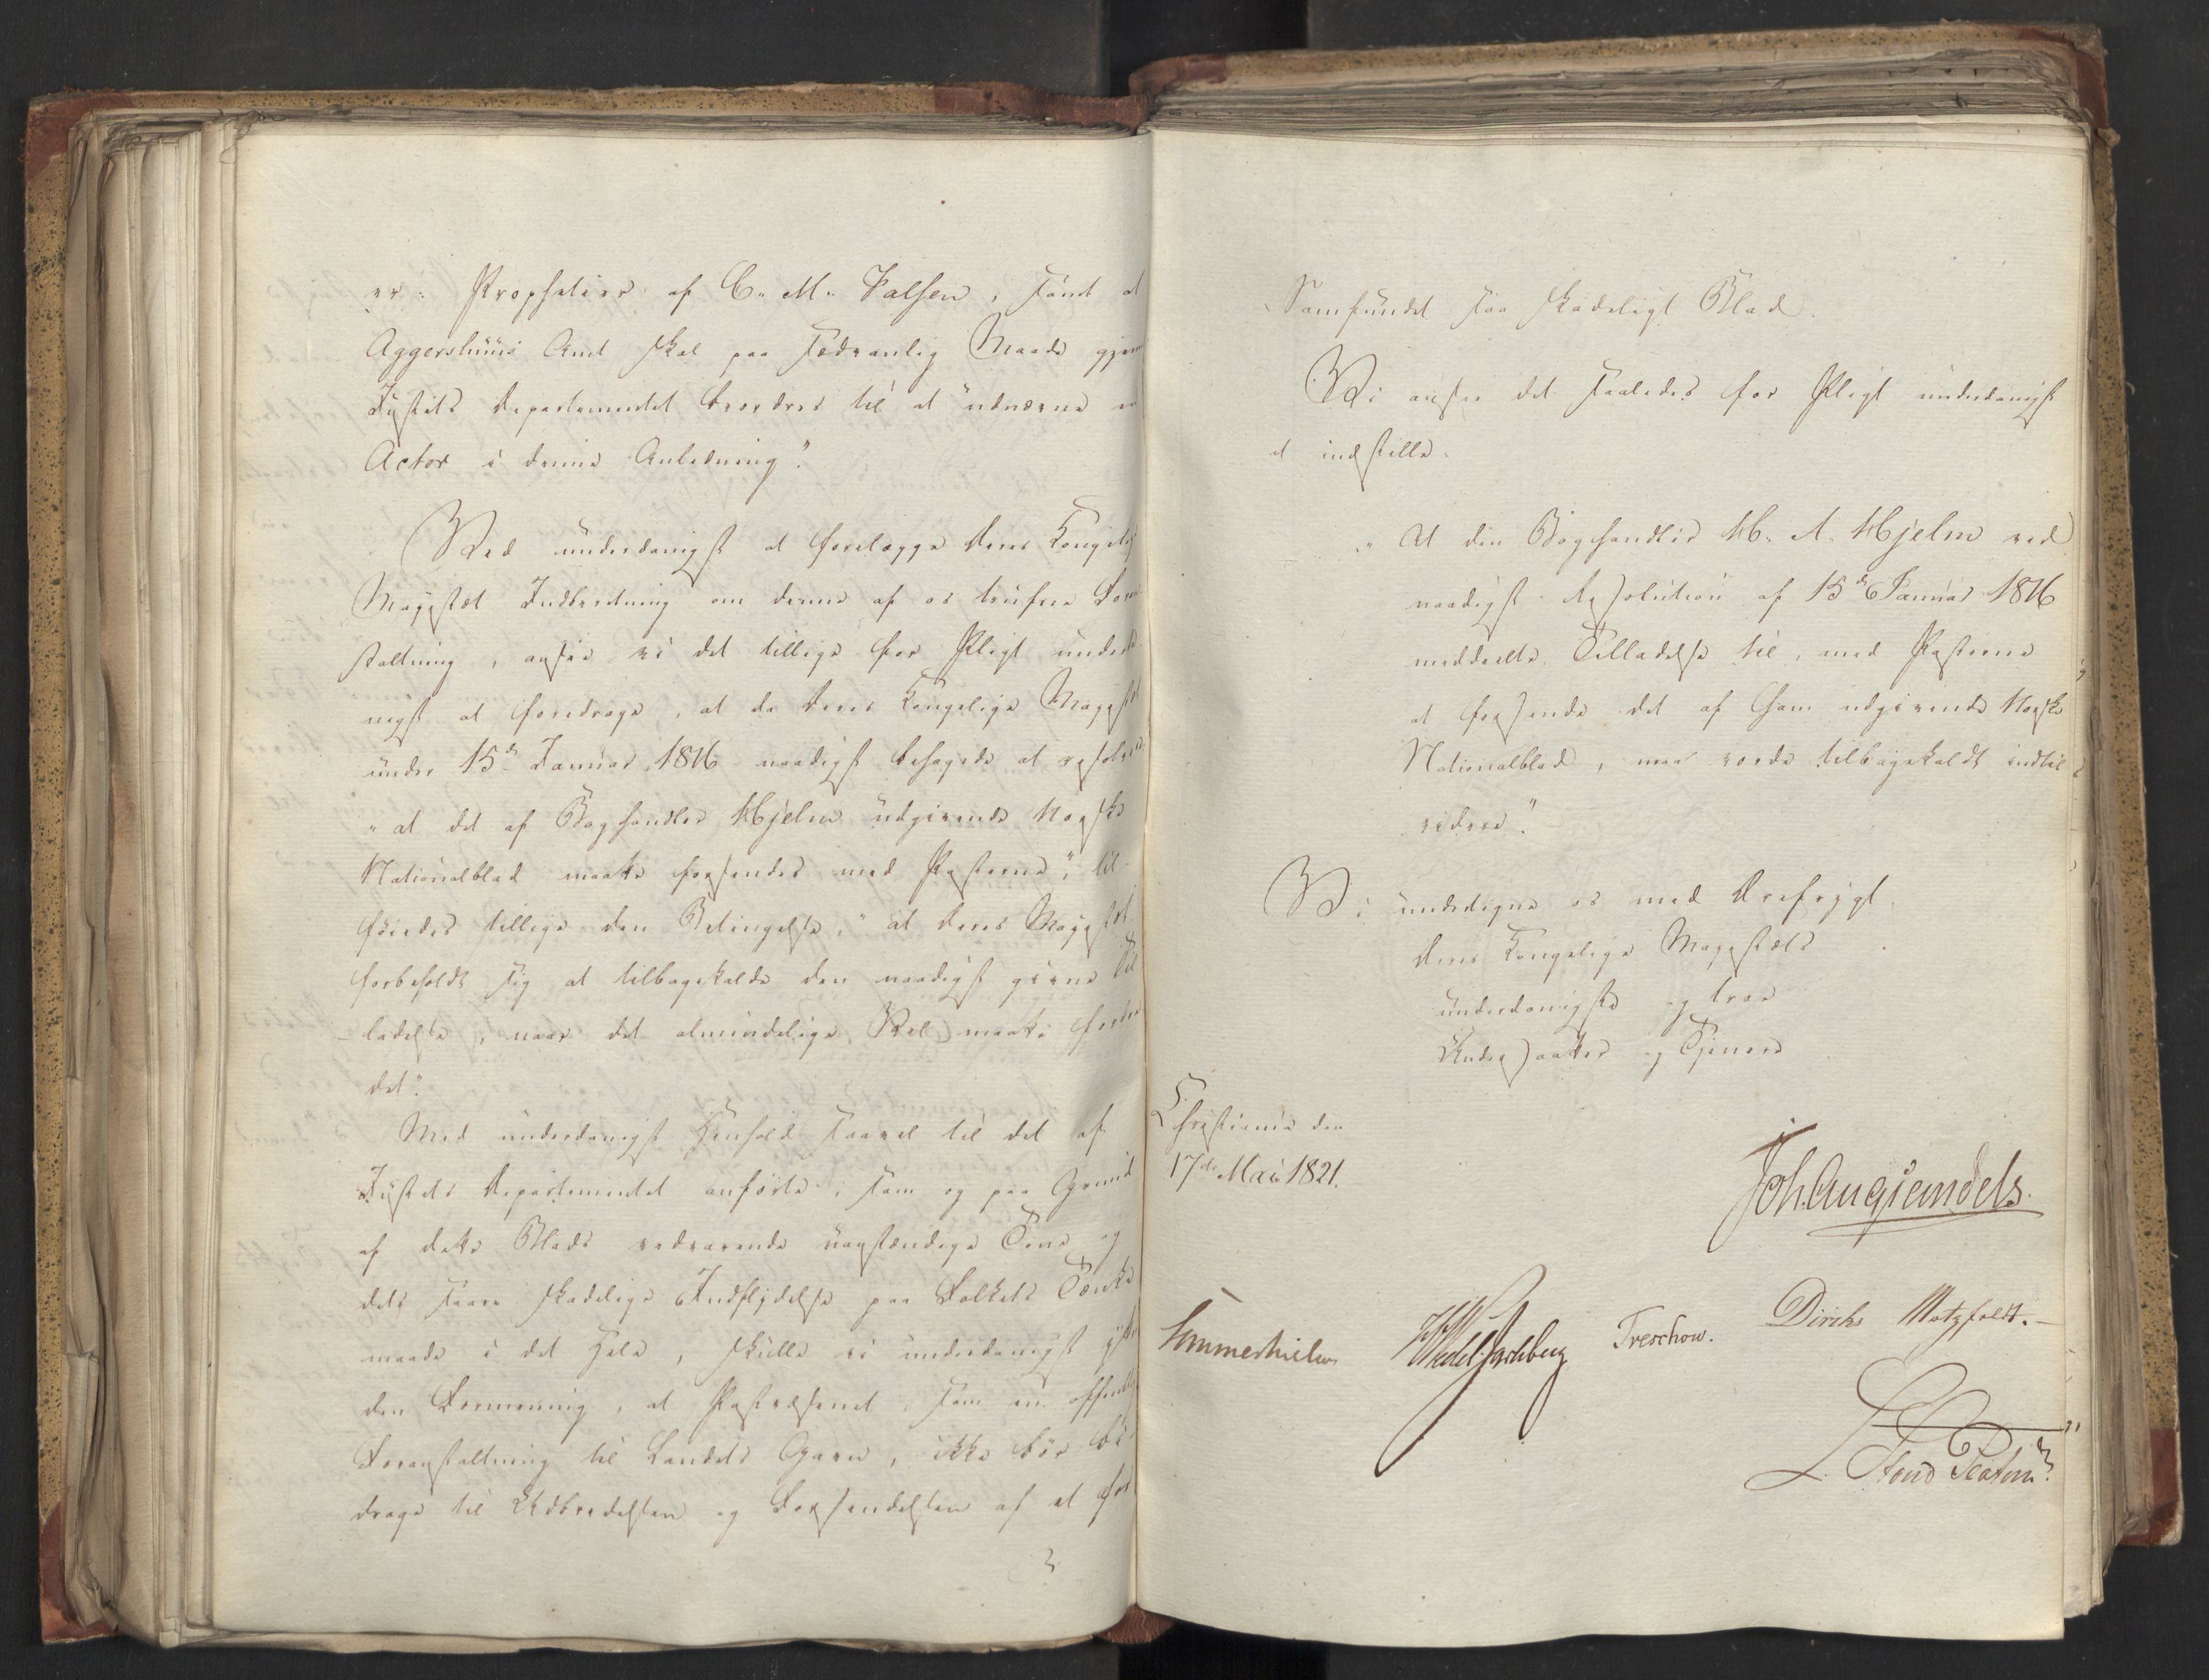 er: Prophetier af C. M. Falsen, samt at
Aggershuus Amt skal paa sædvanlig Maade gjen
Justits Departementet beordres til at udnævne en
Actor i denne Anledning."
Ved underdanigst at forelægge Deres Kongelig
Majestæt Indberetning om denne af os trufne Foran
staltning, ansee vi det tillige for Pligt underda
nigst at foredrage, at da Deres Kongelige Majestæt
under 15de Januar 1816 naadigst behagede at resolvere
"at det af Boghandler Hjelm udgivende Norske
Nationalblad maatte forsendes med Posterne", til
føiedes tillige den Betingelse, "at Deres Majestæt
forbeholdt sig at tilbagekalde den naadigst givne Til
ladelse, naar det almindelige Vel maatte fordre
det".
Med underdanigst Henhold saavel til det af
Justits Departementet anførte, som og paa Grund
af dette Blads vedvarende uanstændige Tone og
dets saare skadelige Indflydelse paa Folkets Tænke
maade i det Hele, skulle vi underdanigst yttre
den Formening, at Postvæsenet, som en offentlig
Foranstaltning til Landets Gavn, ikke bør bi
drage til Udbredelsen og Forsendelsen af et for
Samfundet saa skadeligt Blad.
Vi ansee det saaledes for Pligt underdanigst
at indstille:
"At den Boghandler H. A. Hjelm ved
naadigst Resolution af 15de Januar 1816
meddeelte Tilladelse til, med Posterne
at forsende det af ham udgivende Norske
Nationalblad, maa vorde tilbagekaldt indtil
videre".
Vi undertegne os med Ærefrygt
Deres Kongelige Majestæts
underdanigste og troe
Undersaatter og Tjenere
Christiania den
17de Mai 1821.
Joh. Aug. Sandels.
Sommerhielm Wedel Jarlsberg Treschow. Diriks Motzfeldt.